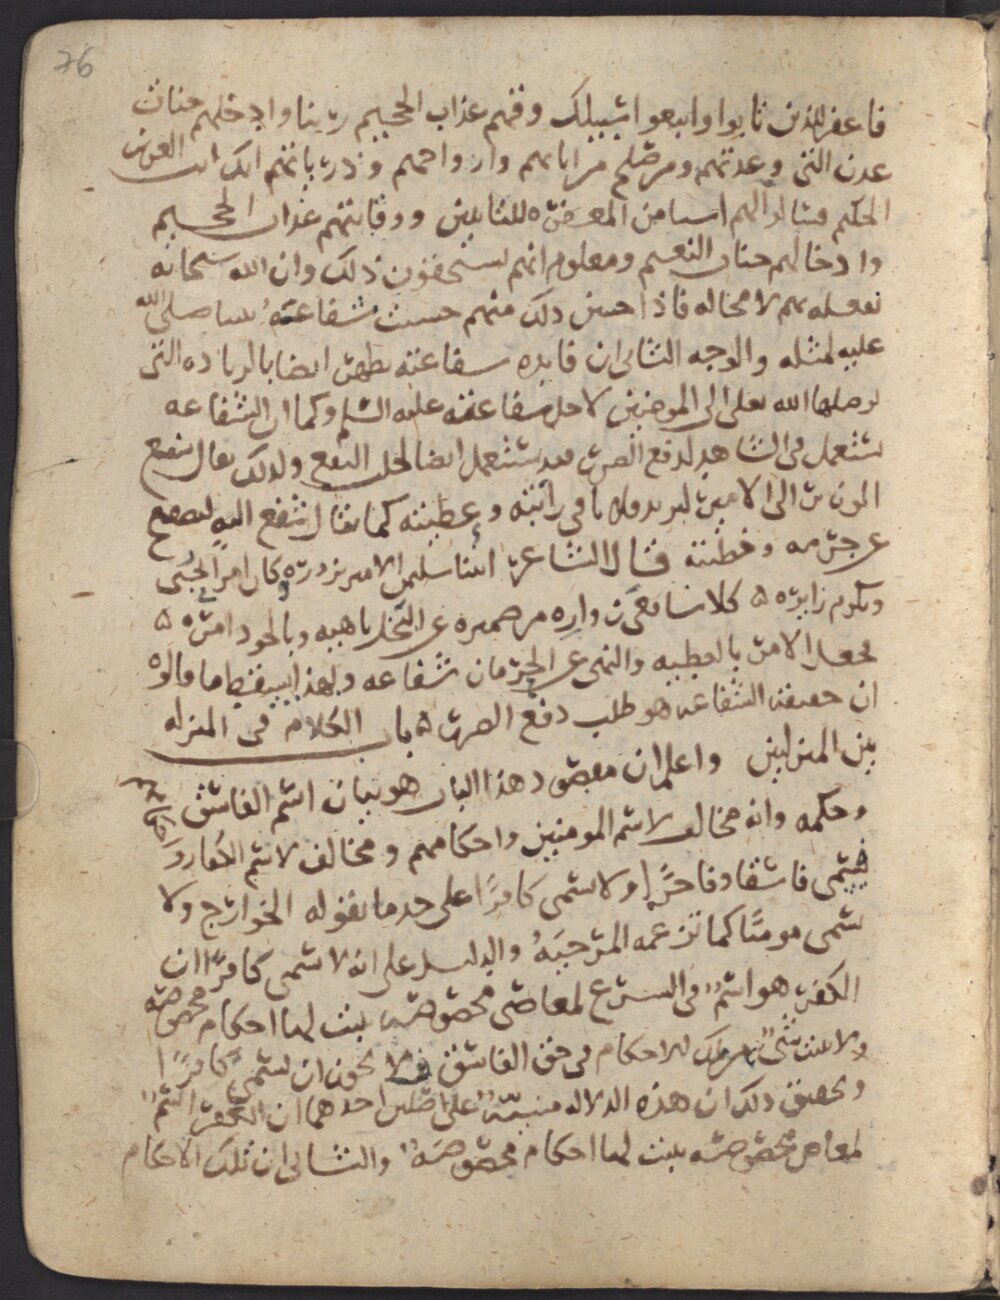 76
فاغفر للذين تابوا واتبعوا سبيلك وقهم عذاب الجحيم ربنا وادخلهم جنات
عدن التي وعدتهم ومن صلح من ابائهم وازواجهم وذرياتهم انك انت العزيز
الحكيم فسالوا لهم المغفره للتايبين ووقايتهم عذاب الجحيم
وادخالهم جنات النعيم ومعلوم انهم يستحقون ذلك وان الله سبحانه
يفعله بهم لا محاله فاذا حسن ذلك منهم حسنت شفاعة نبينا صلى الله
عليه لمثله والوجه الثاني ان فايده شفاعته تظهر ايضا بالزياده التي
يوصلها الله تعالى الى المومنين لاجل شفاعته عليه السلم وكما ان الشفاعه
تستعمل في الشاهد لدفع الضرر فقد تستعمل ايضا لجلب النفع ولذلك يقال شفع
الوزير الى الامير ليزيد فلانا في راتبه وعطيته كما يقال شفع اليه ليصفح
عن جرمه وخطيته قال الشاعر اتينا سليمن الامير نزوره وكان امرا يحبى
ويكرم زايره ۵ كلا شافعي زواره من ضميره عن البخل ناهيه وبالجود امره ۵
فجعل الامر بالعطيه والنهي عن الحرمان شفاعه وبهذا يسقط ما قالوه
ان حقيقة الشفاعه هو طلب دفع الضرر ۵ باب الكلام في المنزله
بين المنزلتين واعلم ان مقصود هذا الباب هو بيان اسم الفاسق
وحكمه وانه مخالف لاسم المومنين واحكامهم ومخالف لاسم الكفار و احكامهم
فيسمى فاسقا وفاجرا ولا يسمى كافرا على حد ما يقوله الخوارج ولا
يسمى مومنا كما تزعمه المرجية والدليل على انه لا يسمى كافرا ان
الكفر هو اسم في الشرع لمعاصي مخصوصه يثبت لها احكام مخصوصه
ولا يثبت شي من تلك الاحكام في حق الفاسق فلا يجوز ان يسمى كافرا
وتحقيق ذلك ان هذه الدلاله مبنية على اصلين احدهما ان الكفر اسم
لمعاص مخصوصه يثبت لها احكام مخصوصه والثاني ان تلك الاحكام